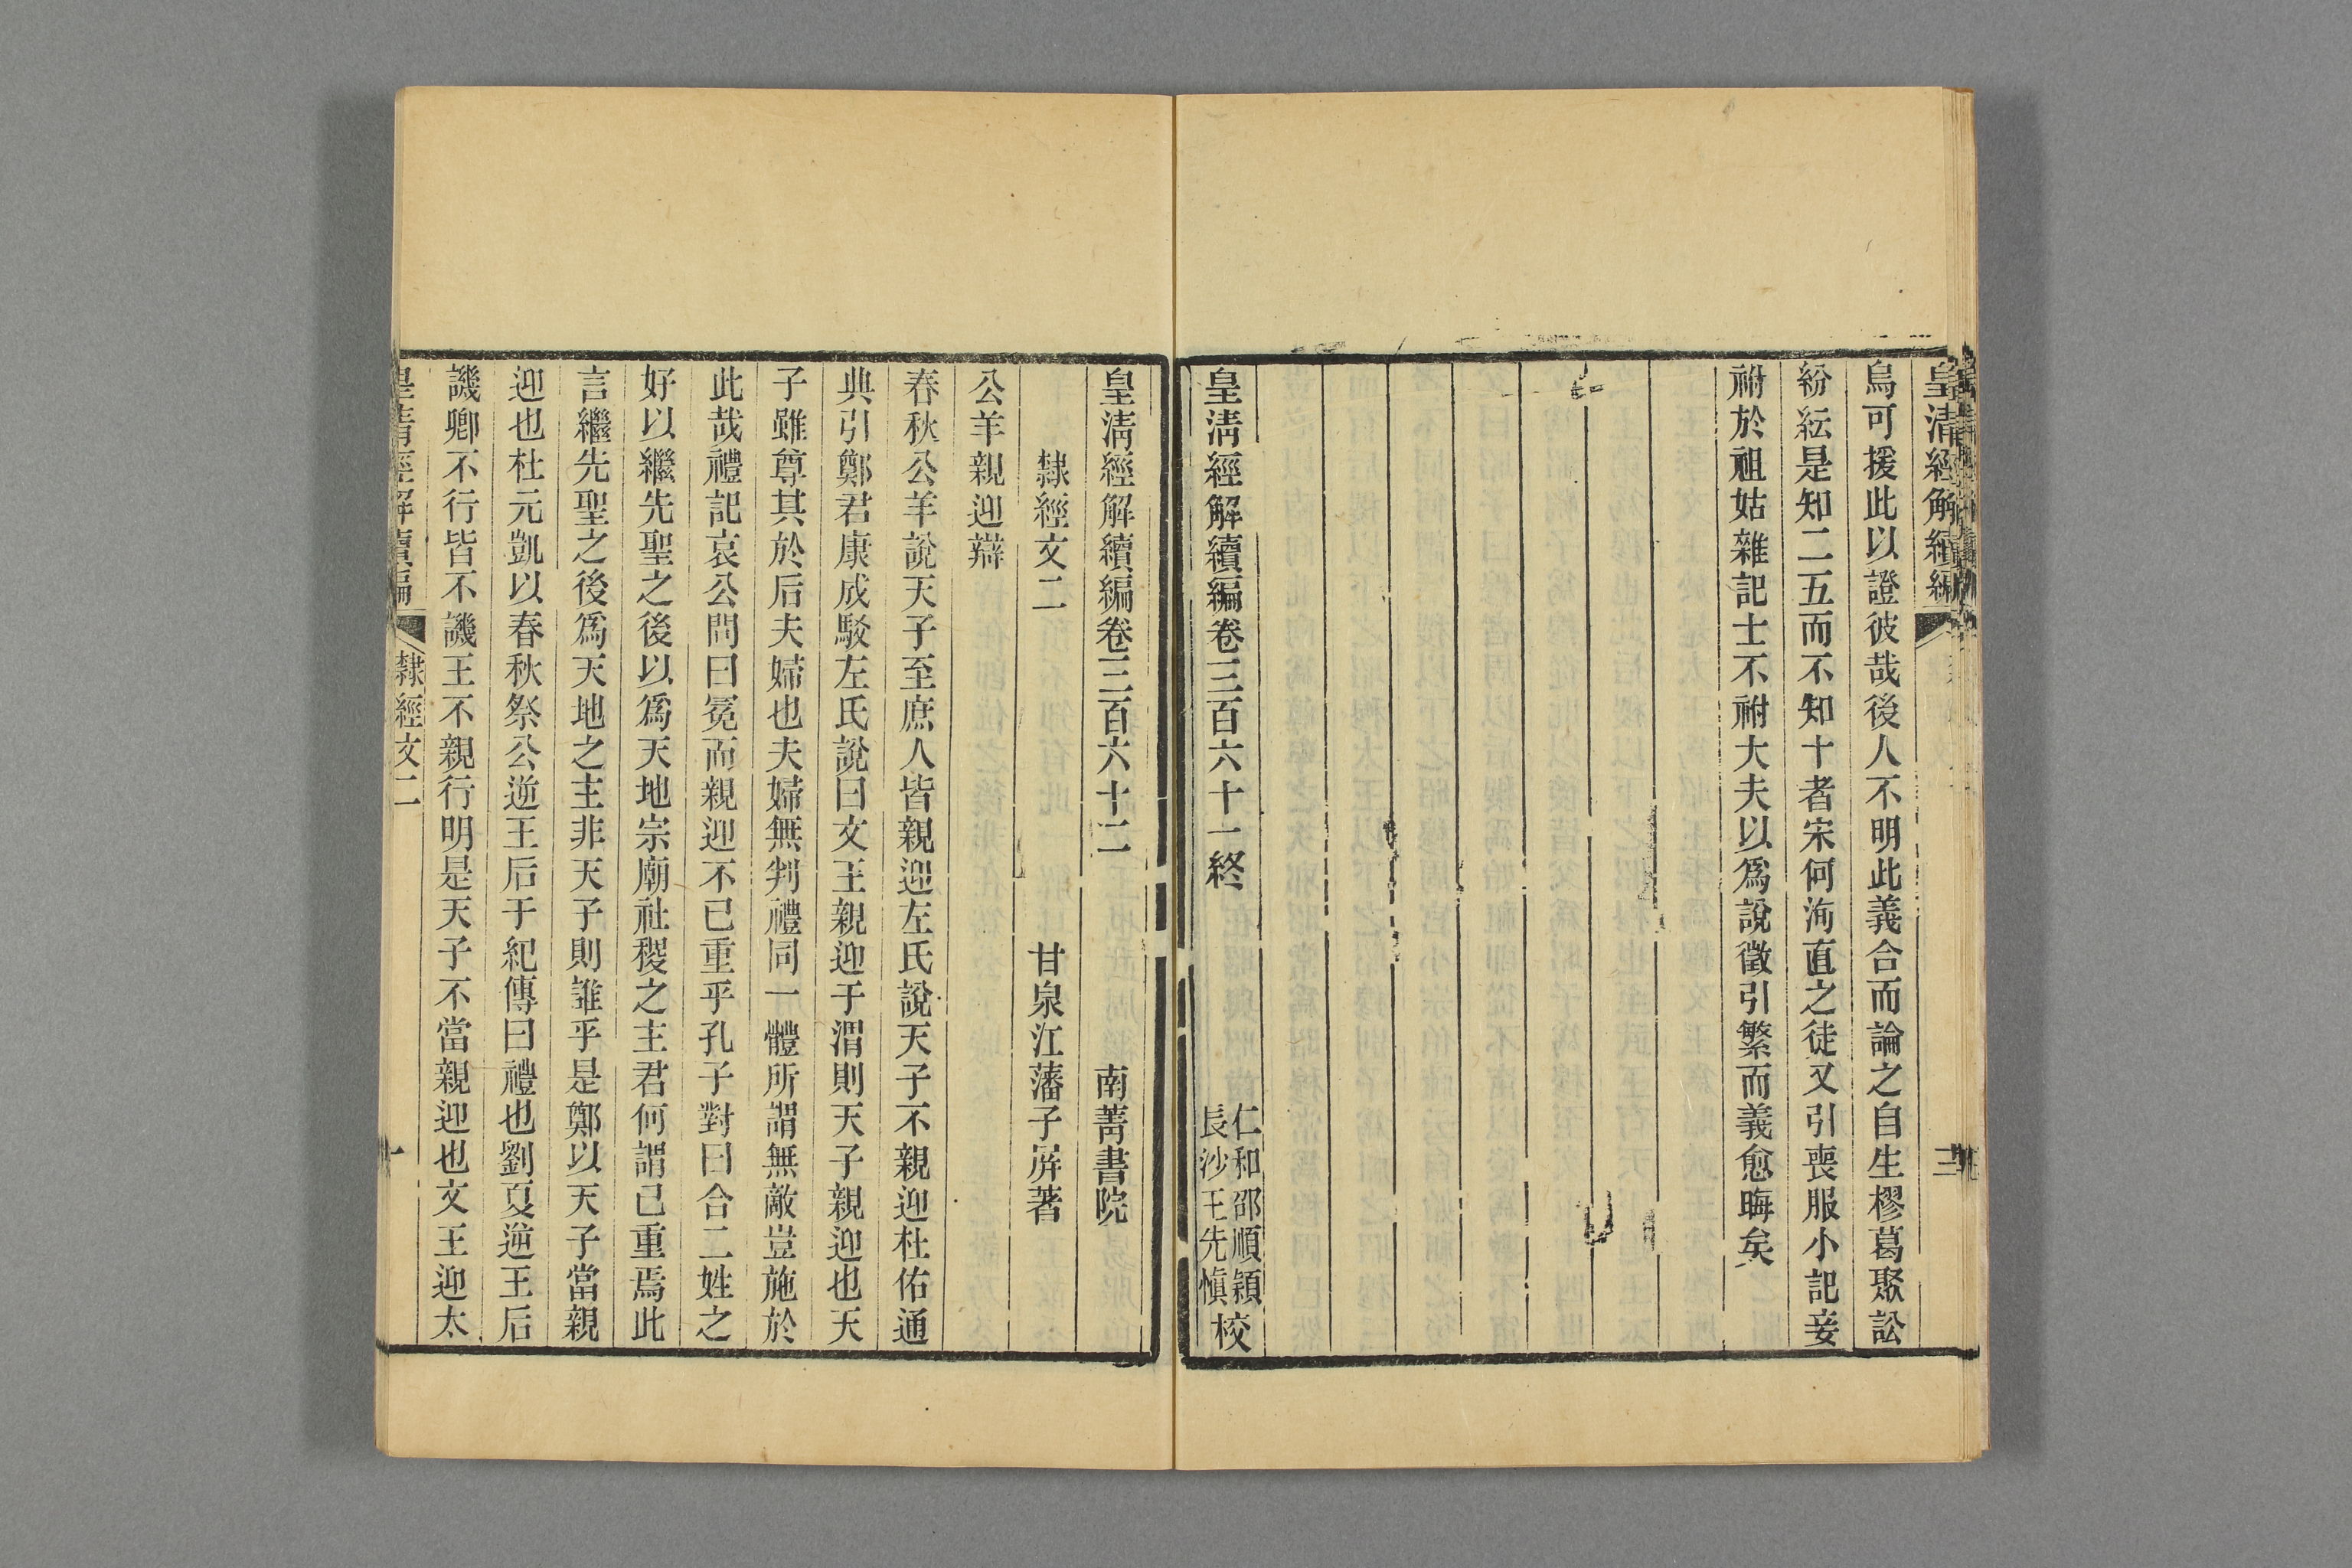 皇清經解續編
三
烏可援此以證彼哉後人不明此義合而論之自生樛葛聚訟
紛紜是知二五而不知十者宋何洵直之徒又引喪服小記妾
祔於祖姑雜記士不祔大夫以爲說徵引繁而義愈晦矣
皇淸經解續編卷三百六十一終
仁和邵順穎
長沙王先愼
校
皇淸經解續編卷三百六十二
南菁書院
隸經文二
甘泉江藩子屏著
公羊親迎辯
春秋公羊說天子至庶人皆親迎左氏說天子不親迎杜佑通
典引鄭君康成駁左氏說曰文王親迎于渭則天子親迎也天
子雖尊其於后夫婦也夫婦無判禮同一體所謂無敵豈施於
此哉禮記哀公問曰冕而親迎不已重乎孔子對曰合二姓之
好以繼先聖之後以爲天地宗廟社稷之主君何謂已重焉此
言繼先聖之後爲天地之主非天子則誰乎是鄭以天子當親
迎也杜元凱以春秋祭公逆王后于紀傳曰禮也劉夏逆王后
譏卿不行皆不譏王不親行明是天子不當親迎也文王迎太
皇清經解續編
隸經文二
一